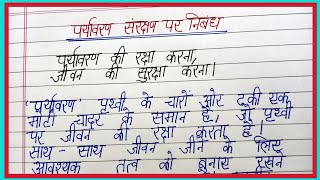 पर्यावरण संरक्षण पर निबंध
पर्यावरण की रक्षा करना,
जीवन की सुरक्षा करना।
'पर्यावरण' पृथ्वी के चारों ओर ढकी एक
मोटी चादर के समान है, जो पृथ्वी
पर जीवन की रक्षा करता है।
साथ - साथ जीवन जीने के लिए
आवश्यक तत्व को बनाए रखने